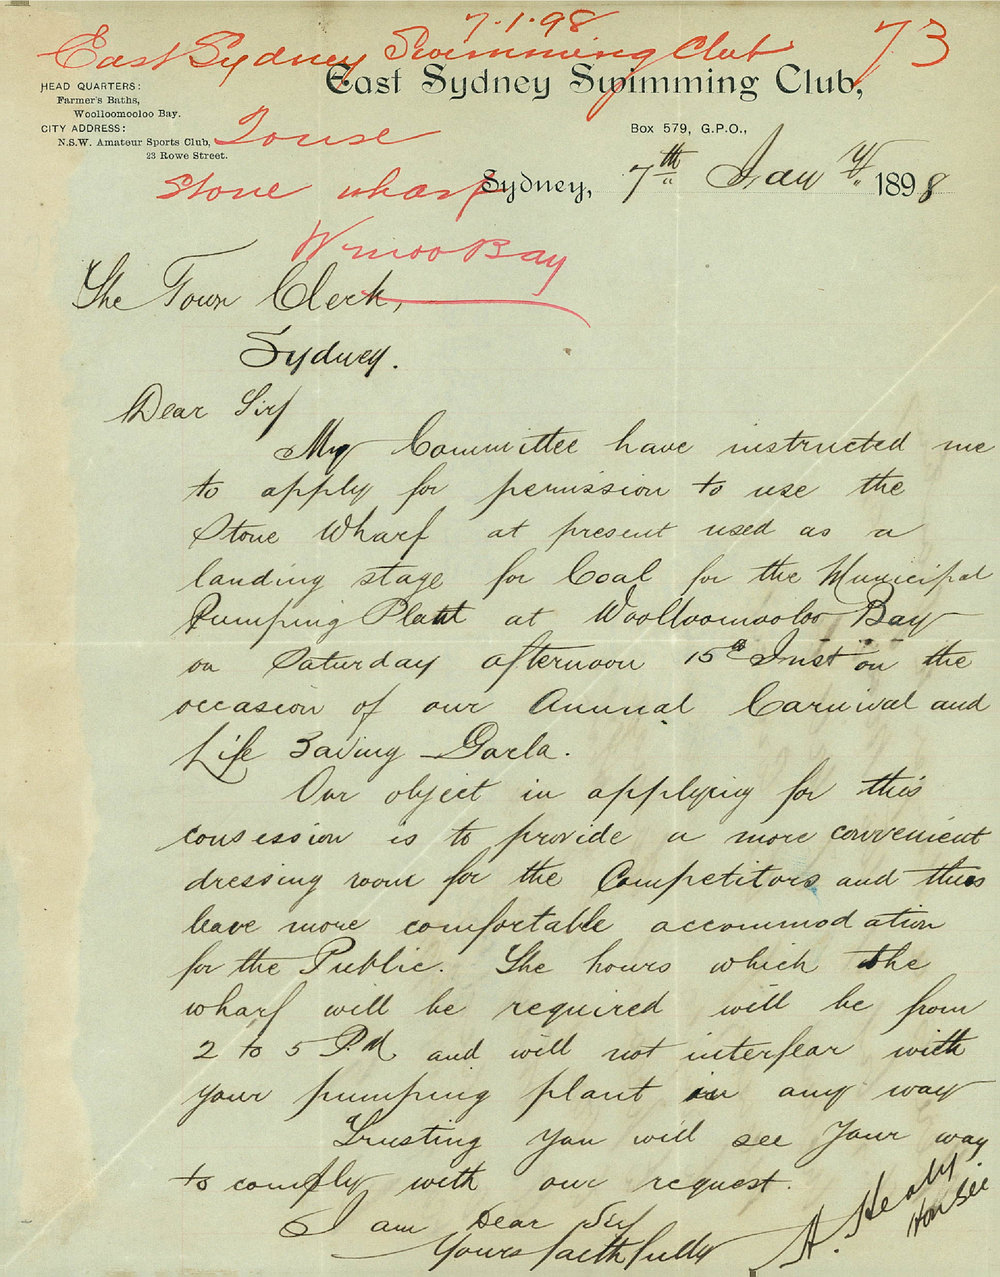 7.1.98
73
East Sydney Swimming Club
East Sydney Swimming Club,
HEAD QUARTERS:
Farmer's Baths,
Woolloomooloo Bay.
CITY ADDRESS:
N.S.W. Amateur Sports Club,
23 Rowe Street.
Box 579, G.P.O.,
To use
Stone wharf
W'mooloo Bay
Sydney, 7th Jany 1898
The Town Clerk,
Sydney.
Dear Sir/
My Committee have instructed me
to apply for permission to use the
Stone Wharf at present used as a
landing stage for Coal for the Municipal
Pumping Plant at Woolloomooloo Bay
on Saturday afternoon 15th Inst on the
occasion of our Annual Carnival and
Life Saving Garla.
Our object in applying for this
consession is to provide a more convenient
dressing room for the Competitors and thus
leave more comfortable accommodation
for the Public. The hours which the
wharf will be required will be from
2 to 5 P.M. and will not interfear with
your pumping plant in any way
Trusting you will see your way
to comply with our request.
I am Dear Sir/
Yours faithfully
A. Healy
Hon Sec